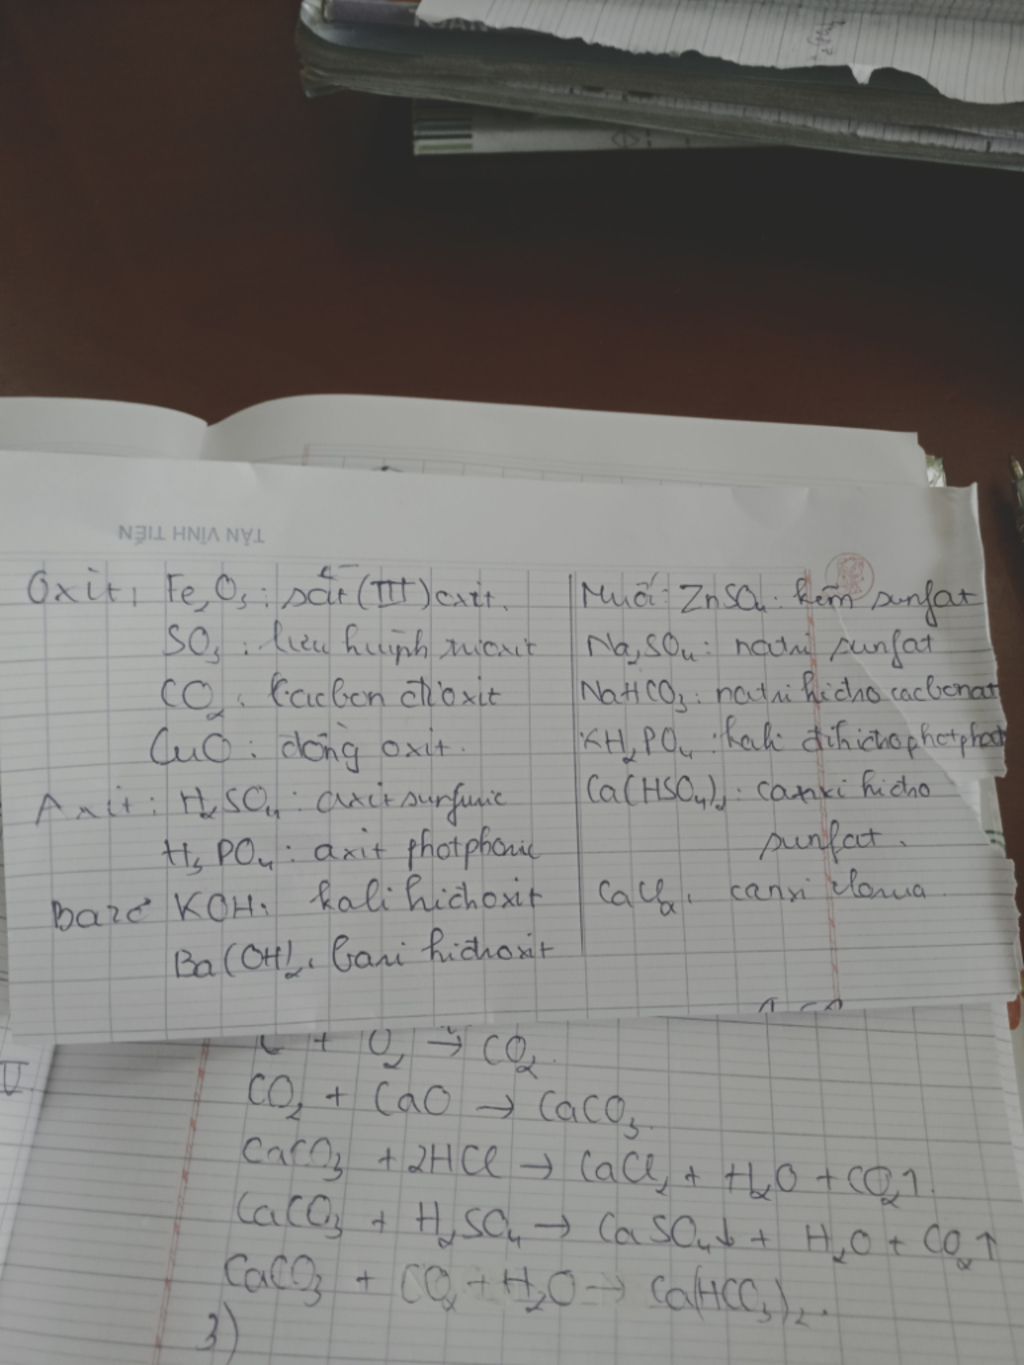 TÂN VĨNH TIẾN
Oxit: Fe₂O₃: sắt (III) oxit.
SO₃: lưu huỳnh trioxit
CO₂: cacbon đioxit
CuO: đồng oxit.
Axit: H₂SO₄: axit sunfuric
H₃PO₄: axit photphoric
Bazơ KOH: kali hiđroxit
Ba(OH)₂: bari hiđroxit
Muối: ZnSO₄: kẽm sunfat
Na₂SO₄: natri sunfat
NaHCO₃: natri hiđro cacbonat
KH₂PO₄: kali đihiđrophotphat
Ca(HSO₄)₂: canxi hiđro
sunfat.
CaCl₂: canxi clorua.
+ O₂ → CO₂.
CO₂ + CaO → CaCO₃.
CaCO₃ + 2HCl → CaCl₂ + H₂O + CO₂↑.
CaCO₃ + H₂SO₄ → CaSO₄↓ + H₂O + CO₂↑
CaCO₃ + CO₂ + H₂O → Ca(HCO₃)₂.
3)